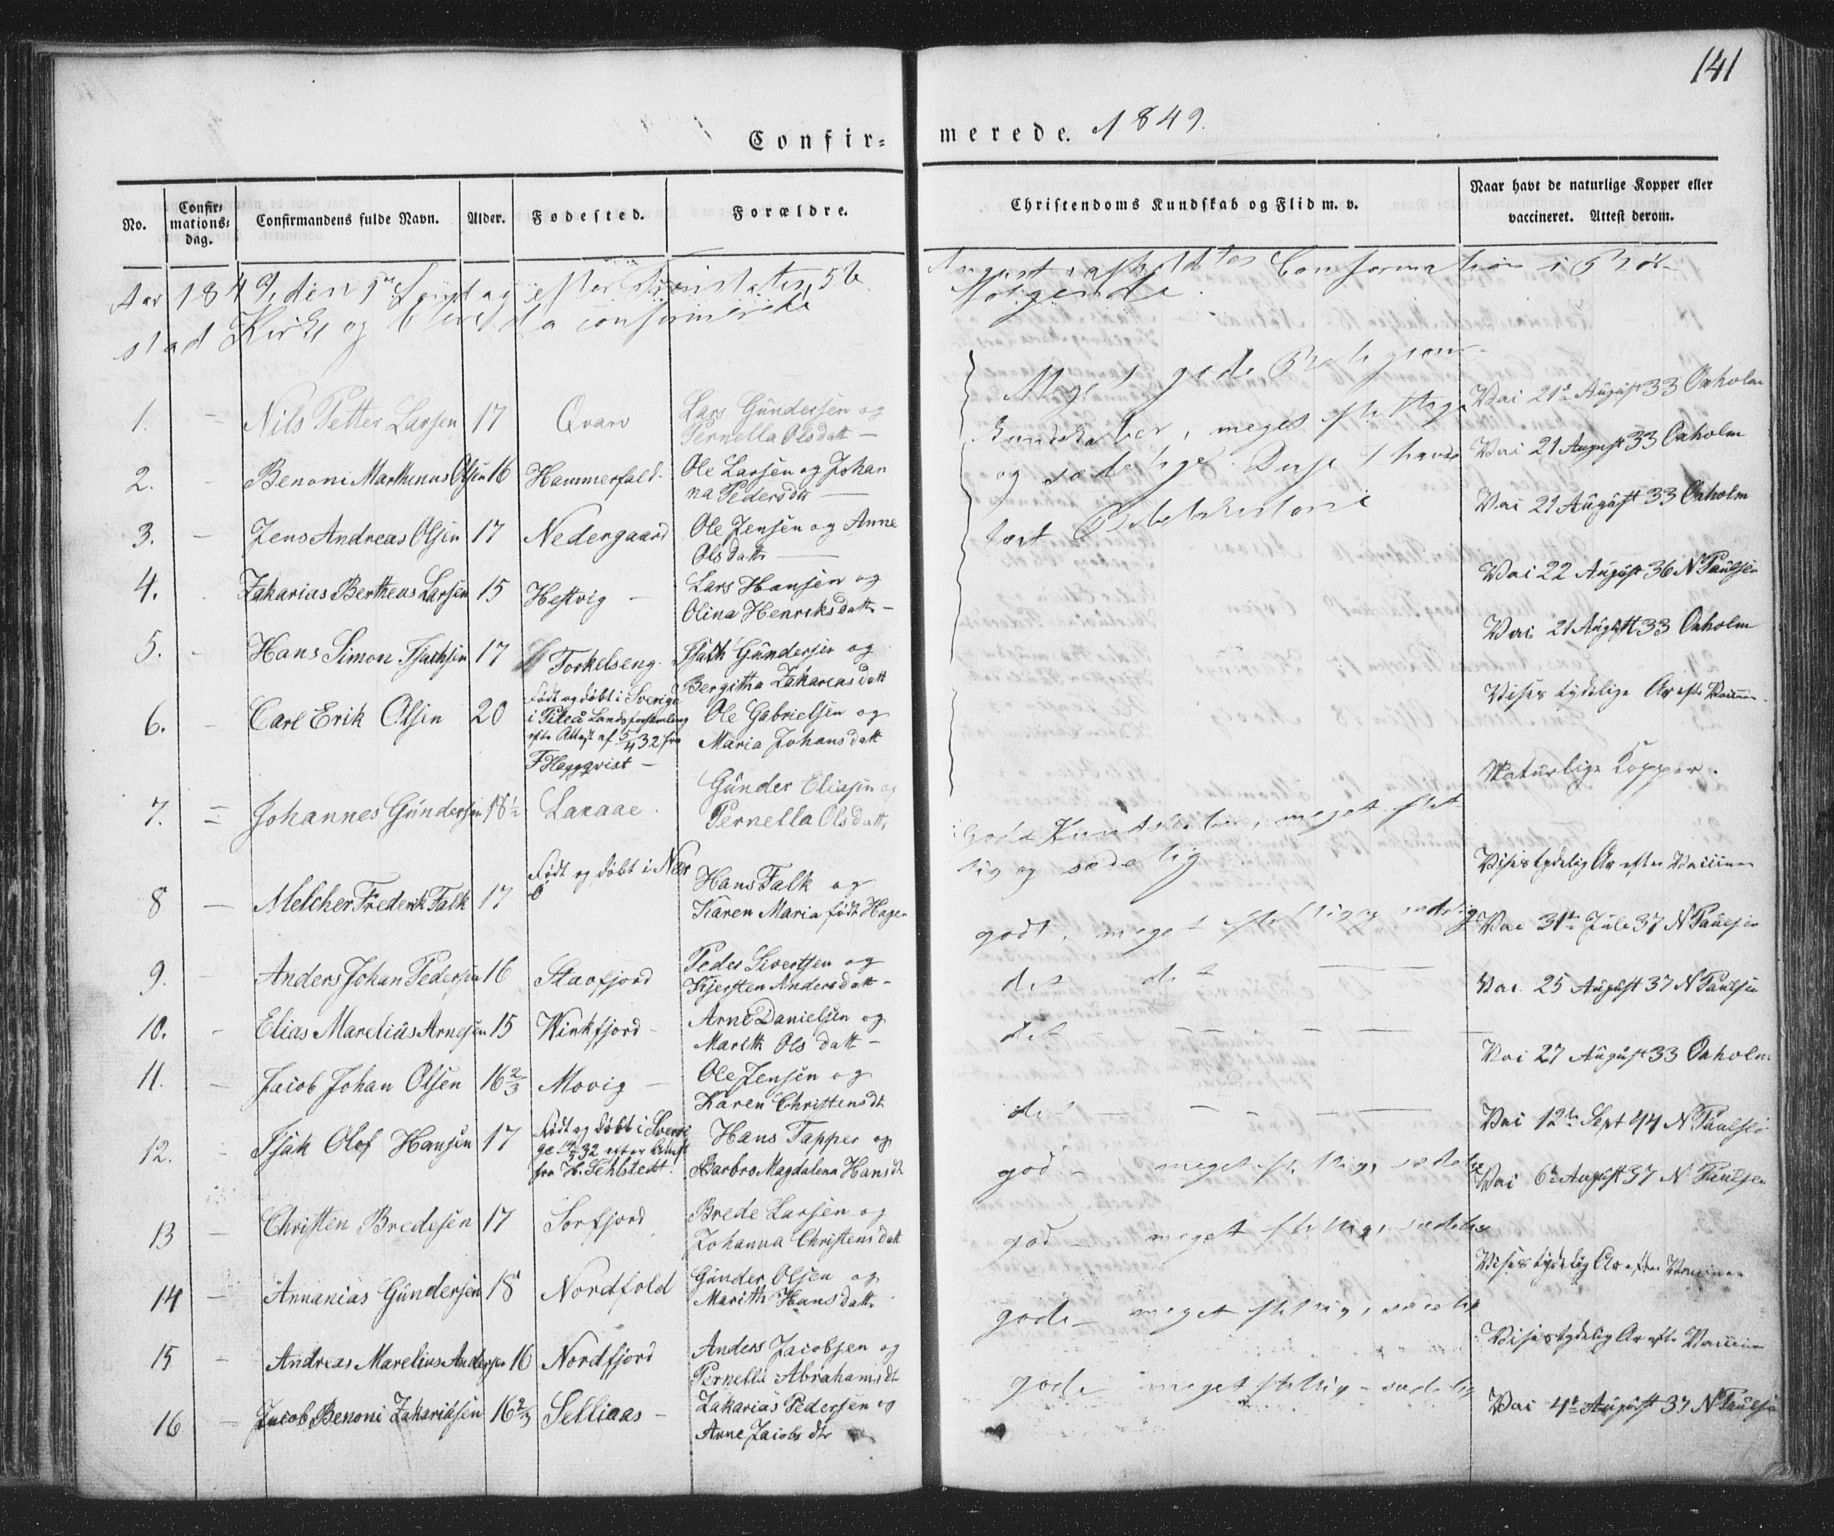 141
Confirmerede. 1849.
No. Confirmationsdag. Confirmandens fulde Navn. Alder. Fødested. Forældre. Christendoms Kundskab og Flid m. v. Naar havt de naturlige Kopper eller vaccineret. Attest derom.
Aar 1849, den Søndag efter Trinitatis, 5te August afholdtes Confirmation i Rør-
stad Kirke og bleve da confirmerede Følgende.
1. Nils Petter Larsen 17 Qvarv Lars Gündersen og
Pernella Olsdatt Meget gode Religions- Vac 21de August 33 Oxholm
2. Benoni Marthinus Olsen 16 Hammerfald Ole Larsen og Johan
na Pedersdtt kundskaber, meget flittige Vac 21 August 33 Oxholm
3. Jens Andreas Olsen 17 Nedergaard Ole Jensen og Anne
Olsdatt og sædelige. Disse 7 have Vac 21 August 33 Oxholm
læst Bibelhistorie
4. Zakarias Bertheus Larsen 15 Hestvig Lars Hansen og
Olina Henriksdatt Vac 22 August 36 N Paulsen
5. Hans Simon Isachsen 17 Torkelseng Isach Gündersen og
Bergitha Zakariasdatt Vac 21 August 33 Oxholm
6. Carl Erik Olsen 20 Født og døbt i Sverige
i Piteå Landsforsamling
efter Attest af 5/4 32 fra
F Heggqvist Ole Gabrielsen og
Maria Johansdatt Vises tydelige Ar efter Vaccinen
7. Johannes Gündersen 18½ Laxaae Günder Eliasen og
Pernella Olsdatt Gode Kundskaber, meget flit-
tig og sædelig Naturlige Kopper.
8 Melcher Frederik Falk 17 Født og døbt i Nær
ø Hans Falk og
Karen Maria født Hagen godt, meget flittig og sædelig Vises tydelig Ar efter Vaccinen
9. Anders Johan Pedersen 16 Stavfjord Peder Sivertsen og
Kjersten Andersdatt det det Vac 31te Jule 37 N Paulsen
10. Elias Marelius Arnesen 15 Winkfjord Arne Danielsen og
Marith Olsdatt det Vac 25 August 37 N Paulsen
11. Jacob Johan Olsen 16 2/3 Movig Ole Jensen og
Karen Christensdt det Vac 27 August 33 Oxholm
12. Isak Olof Hansen 17 Født og døbt i Sveri
ge 14/5 32 efter Attest
fra H. Sehlstedt. Hans Tapper og
Barbro Magdalena Hansdt god meget flittig, sædelig Vac 12te Sept 44 N Paulsen
13 Christen Bredesen 17 Sørfjord Brede Larsen og
Johanna Christensdatt god meget flittig, sædelig Vac 6te August 37 N Paulsen
14 Annanias Gündersen 18 Nordfold Günder Olsen og
Marith Hansdatt gode meget flittig, sædelig Vises tydelig Ar efter Vaccinen
15 Andreas Marelius Andersen 16 Nordfjord Anders Jacobsen og
Pernella Abrahamsdt gode meget flittig sædelig Vises tydelig Ar efter Vaccinen
16 Jacob Benoni Zakariasen 16 2/3 Selliaas Zakarias Pedersen og
Anne Jacobsdtr Vac 4de August 37 N Paulsen